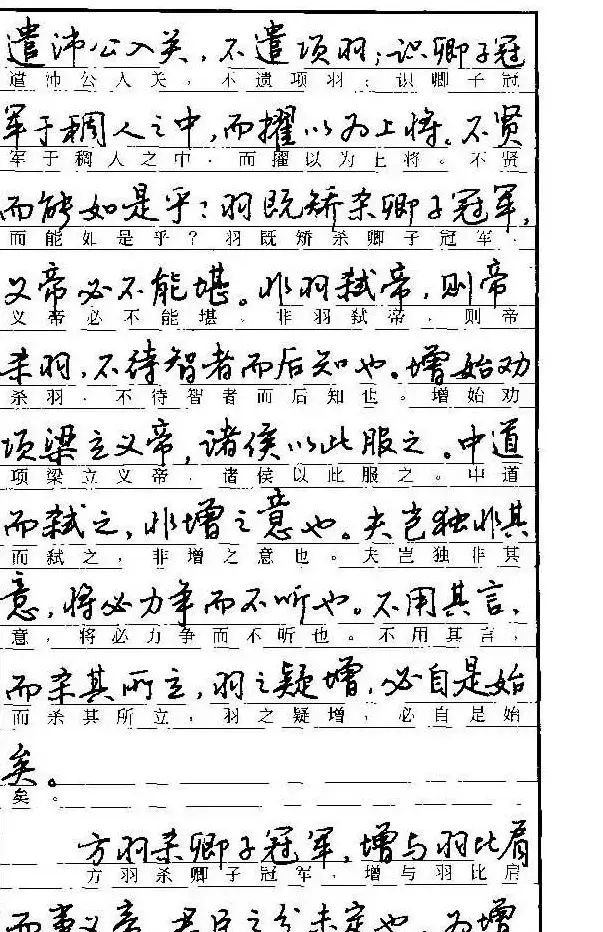 遣沛公入关，不遣项羽；识卿子冠
遣沛公入关，不遣项羽；识卿子冠
军于稠人之中，而擢以为上将。不贤
军于稠人之中，而擢以为上将。不贤
而能如是乎？羽既矫杀卿子冠军，
而能如是乎？羽既矫杀卿子冠军，
义帝必不能堪。非羽弑帝，则帝
义帝必不能堪。非羽弑帝，则帝
杀羽，不待智者而后知也。增始劝
杀羽，不待智者而后知也。增始劝
项梁立义帝，诸侯以此服之。中道
项梁立义帝，诸侯以此服之。中道
而弑之，非增之意也。夫岂独非其
而弑之，非增之意也。夫岂独非其
意，将必力争而不听也。不用其言，
意，将必力争而不听也。不用其言，
而杀其所立，羽之疑增，必自是始
而杀其所立，羽之疑增，必自是始
矣。
矣。
方羽杀卿子冠军，增与羽比肩
方羽杀卿子冠军，增与羽比肩
而事义帝，君臣之分未定也。为增